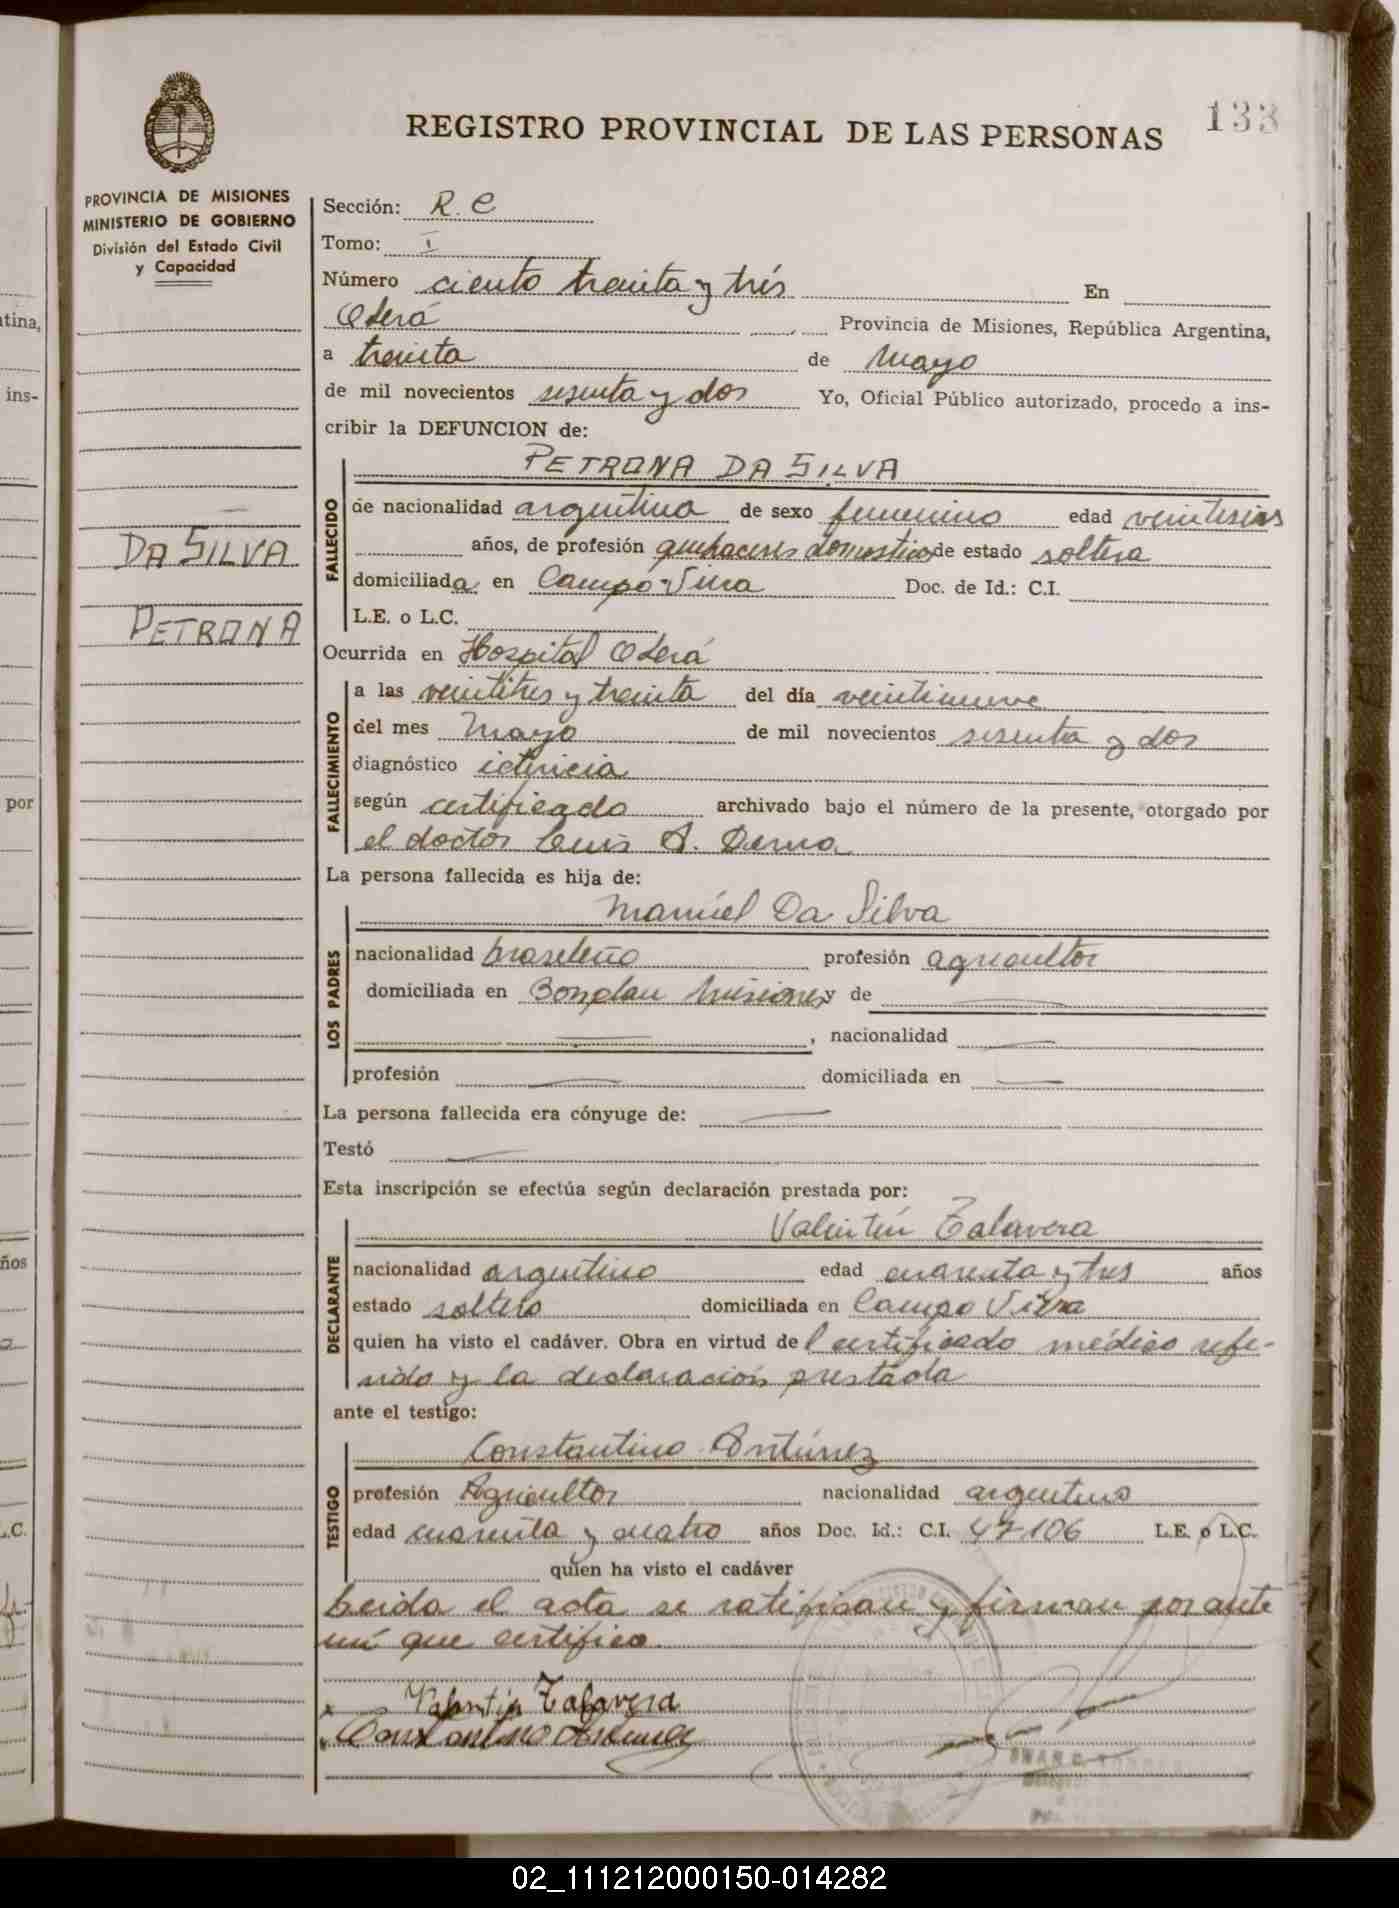 133
REGISTRO PROVINCIAL DE LAS PERSONAS
PROVINCIA DE MISIONES
MINISTERIO DE GOBIERNO
División del Estado Civil
y Capacidad
Sección: R. C
Tomo: I
Número ciento treinta y trés En
Oberá Provincia de Misiones, República Argentina,
a treinta de Mayo
de mil novecientos sesenta y dos Yo, Oficial Público autorizado, procedo a ins-
cribir la DEFUNCION de:
PETRONA DA SILVA
DA SILVA
PETRONA
FALLECIDO
de nacionalidad argentina de sexo femenino edad veintiseis
años, de profesión quehaceres domesticos de estado soltera
domiciliada en Campo Viera Doc. de Id.: C.I.
L.E. o L.C.
Ocurrida en Hospital Oberá
FALLECIMIENTO
a las veintitres y treinta del día veintinueve
del mes Mayo de mil novecientos sesenta y dos
diagnóstico ictericia
según certificado archivado bajo el número de la presente, otorgado por
el doctor Luis A.
La persona fallecida es hija de:
Manuel Da Silva
LOS PADRES
nacionalidad brasileño profesión agricultor
domiciliada en Bonplan Misiones y de
, nacionalidad
profesión domiciliada en
La persona fallecida era cónyuge de:
Testó
Esta inscripción se efectúa según declaración prestada por:
Valentín Talavera
DECLARANTE
nacionalidad argentino edad cuarenta y tres años
estado soltero domiciliada en Campo Viera
quien ha visto el cadáver. Obra en virtud del certificado médico refe-
rido y la declaración prestada
ante el testigo:
Constantino Antúnez
TESTIGO
profesión Agricultor nacionalidad argentino
edad cuarenta y cuatro años Doc. Id.: C.I. 47106 L.E. o L.C.
quien ha visto el cadáver
Leida el acta se ratifican y firman por ante
mí que certifico.
Valentin Talavera
Constantino Antunez
tina,
ins-
por
ños
L.C.
02_111212000150-014282